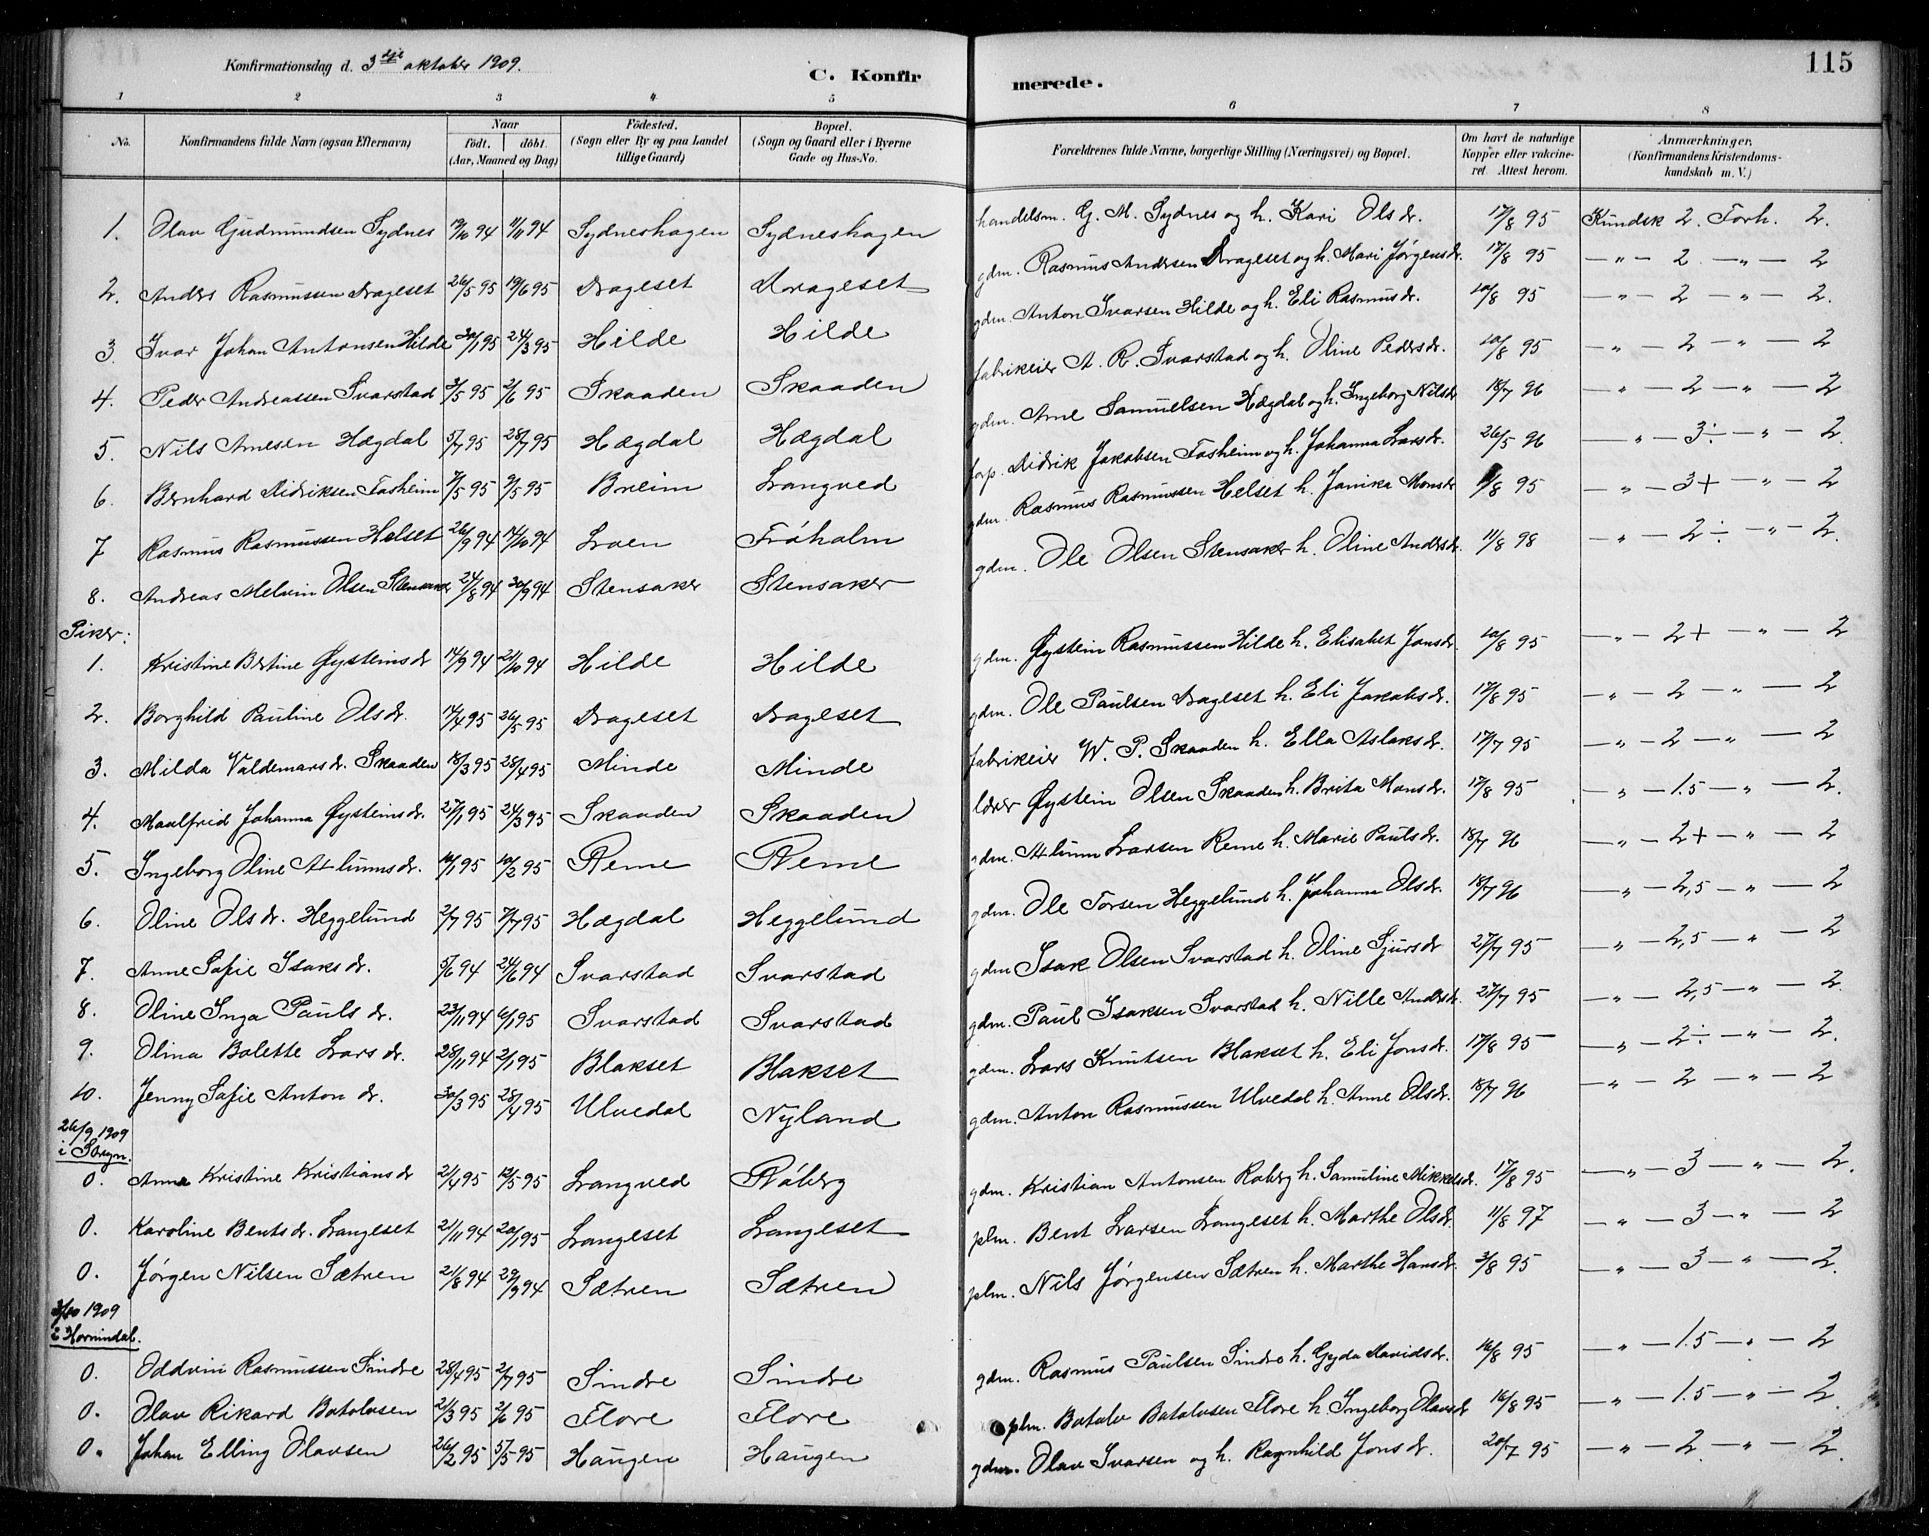 115
Konfirmationsdag d. 3dje oktober 1909.
C. Konfirmerede.
1 2 3 4 5 6 7 8
No. Konfirmandens fulde Navn (ogsaa Efternavn) Naar født. døbt. (Aar, Maaned og Dag) Fødested. (Sogn eller By og paa Landet tillige Gaard) Bopæl. (Sogn og Gaard eller i Byerne Gade og Hus-No. Forældrenes fulde Navne, borgerlige Stilling (Næringsvei) og Bopæl. Om havt de naturlige Kopper eller vakcineret. Attest herom. Anmærkninger. (Konfirmandens Kristendomskundskab m. V.)
1. Olav Gudmundsen Sydnes 19/10 94 1/11 94 Sydneshagen Sydneshagen handelsm. G. M. Sydnes og h. Kari Olsdr. 17/8 95 Kundsk 2. Forh. 2.
2. Anders Rasmussen Drageset 26/5 95 19/6 95 Drageset Drageset gdm. Rasmus Andersen Drageset og h. Mari Jørgensdr. 17/8 95 — " — 2 — " — 2
3. Ivar Johan Antonsen Hilde 30/1 95 24/3 95 Hilde Hilde gdm. Anton Ivarsen Hilde og h. Eli Rasmusdr. 10/8 95 — " — 2 — " — 2.
4. Peder Andreassen Svarstad 3/5 95 2/6 95 Skaaden Skaaden fabrikeier A. R. Svarstad og h. Oline Pedersdr. 10/8 95 — " — 2 — " — 2
5. Nils Arnesen Hægdal 5/7 95 28/7 95 Hægdal Hægdal gdm. Arne Samuelsen Hægdal og h. Ingeborg Nilsdr 18/7 96 — " — 2 — " — 2
6. Bernhard Didriksen Fosheim 7/5 95 9/5 95 Breim Langved forp. Didrik Jakobsen Fosheim og h. Johanna Larsdr. 26/5 96 — " — 3÷ — " — 2.
7 Rasmus Rasmussen Helset 26/9 94 14/10 94 Loen Frøholm gdm. Rasmus Rasmussen Helset h. Janika Monsdr /8 95 — " — 3+ — " — 2
8. Andreas Melvin Olsen Stensaker 24/8 94 30/9 94 Stensaker Stensaker gdm. Ole Olsen Stensaker h. Oline Andersdr. 11/8 98 — " — 2÷ — " — 2.
Piker:
1. Kristine Bertine Øysteinsdr 14/9 94 21/10 94 Hilde Hilde gdm. Øystein Rasmussen Hilde h. Elisabet Jonsdr. 10/8 95 — " — 2+ — " — 2
2. Borghild Pauline Olsdr. 17/4 95 26/5 95 Drageset Drageset gdm. Ole Paulsen Drageset h. Eli Jakobsdr. 17/8 95 — " — 2 — " — 2
3. Milda Valdemarsdr. Skaaden 18/3 95 28/4 95 Minde Minde fabrikeier W. P. Skaaden h. Ella Aslaksdr. 17/7 95 — " — 2 — " — 2
4. Maalfrid Johanna Øysteinsdr. 27/1 95 24/3 95 Skaaden Skaaden lærer Øystein Olsen Skaaden h. Brita Monsdr. 17/8 95 — " — 1.5 — " — 2.
5. Ingeborg Oline Atlumsdr. 16/1 95 10/2 95 Reme Reme gdm. Atlum Larsen Reme h. Marie Paulsdr. 18/7 96 — " — 2+ — " — 2
6. Oline Olsdr. Heggelund 2/7 95 7/7 95 Hægdal Heggelund gdm. Ole Torsen Heggelund h. Johanna Olsdr. 18/7 96 — " — 2,5 — " — 2
7. Anne Sofie Isaksdr. 5/6 94 24/6 94 Svarstad Svarstad gdm Isak Olsen Svarstad h. Oline Sjursdr 27/7 95 — " — 2,5 — " — 2
8. Oline Inga Paulsdr. 23/11 94 6/1 95 Svarstad Svarstad gdm. Paul Isaksen Svarstad h. Nille Andersdr. 27/7 95 — " — 2,5 — " — 2
9. Olina Bolette Larsdr. 28/11 94 2/1 95 Blakset Blakset gdm. Lars Knutsen Blakset h. Eli Jonsdr. 17/8 95 — " — 2÷ — " — 2.
10. Jenny Sofie Antondr. 30/3 95 28/4 95 Ulvedal Nyland gdm. Anton Rasmussen Ulvedal h. Anne Olsdr. 18/7 96 — " — 2 — " — 2
26/9 1909
i Stryn.
0. Anna Kristine Kristiansdr 21/4 95 12/5 95 Langved Røberg gdm. Kristian Antonsen Roberg h. Samuline Mikkelsdr. 17/8 95 — " — 3 — " — 2.
0. Karoline Bentsdr. Langeset 21/11 94 20/1 95 Langeset Langeset plm. Bent Larsen Langeset h. Marthe Olsdr. 11/8 97 — " — 3 — " — 2
0. Jørgen Nilsen Sætren 21/8 94 29/9 94 Sætren Sætren plm. Nils Jørgensen Sætren h. Marthe Hansdr. 3/8 95 — " — 3 — " — 2.
3/10 1909
i Hornindal.
0. Oddvin Rasmussen Sindre 28/4 95 2/7 95 Sindre Sindre gdm. Rasmus Paulsen Sindre h. Gyda Davidsdr. 16/8 95 — " — 1.5 — " — 2
0. Olav Rikard Botolvsen 21/3 95 2/6 95 Flore Flore plm. Botolv Botolvsen Flore h. Ingeborg Olavsdr 16/8 95 — " — 1.5 — " — 2.
0. Johan Elling Olavsen 26/2 95 5/5 95 Haugen Haugen gdm. Olav Ivarsen og h. Ragnhild Jonsdr. 20/7 95 — " — 2 — " — 2.